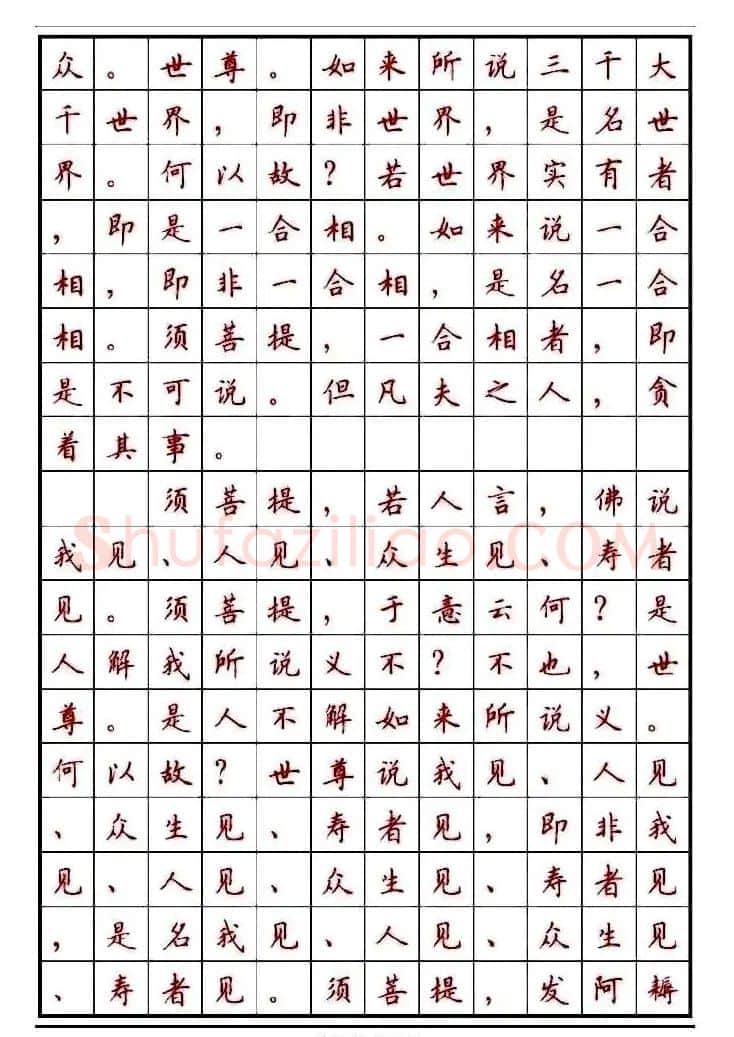 众。世尊。如来所说三千大
千世界，即非世界，是名世
界。何以故？若世界实有者
，即是一合相。如来说一合
相，即非一合相，是名一合
相。须菩提，一合相者，即
是不可说。但凡夫之人，贪
着其事。
须菩提，若人言，佛说
我见、人见、众生见、寿者
见。须菩提，于意云何？是
人解我所说义不？不也，世
尊。是人不解如来所说义。
何以故？世尊说我见、人见
、众生见、寿者见，即非我
见、人见、众生见、寿者见
，是名我见、人见、众生见
、寿者见。须菩提，发阿耨
Shufaziliao.COM